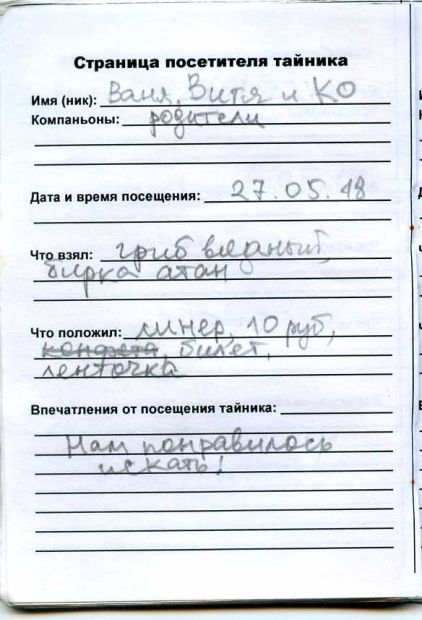 Страница посетителя тайника
Имя (ник): Ваня, Витя и КО
Компаньоны: родители
Дата и время посещения: 27.05.18
Что взял: гриб вязаный,
бирка атан
Что положил: линер, 10 руб,
конфета, билет,
ленточка
Впечатления от посещения тайника:
Нам понравилось
искать!